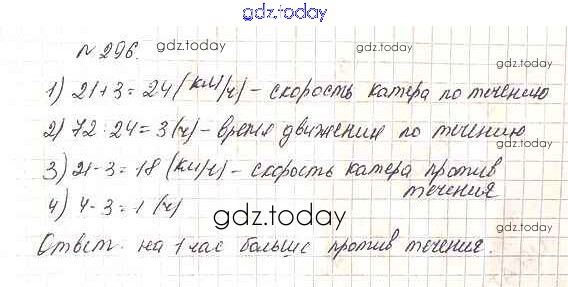 gdz.today
№ 296.
gdz.today gdz.today
1) 21+3=24 (км/ч) – скорость катера по течению
2) 72:24=3 (ч) – время движения по течению
3) 21-3=18 (км/ч) – скорость катера против
течения
4) 4-3=1 (ч)
gdz.today
Ответ: на 1 час больше против течения.